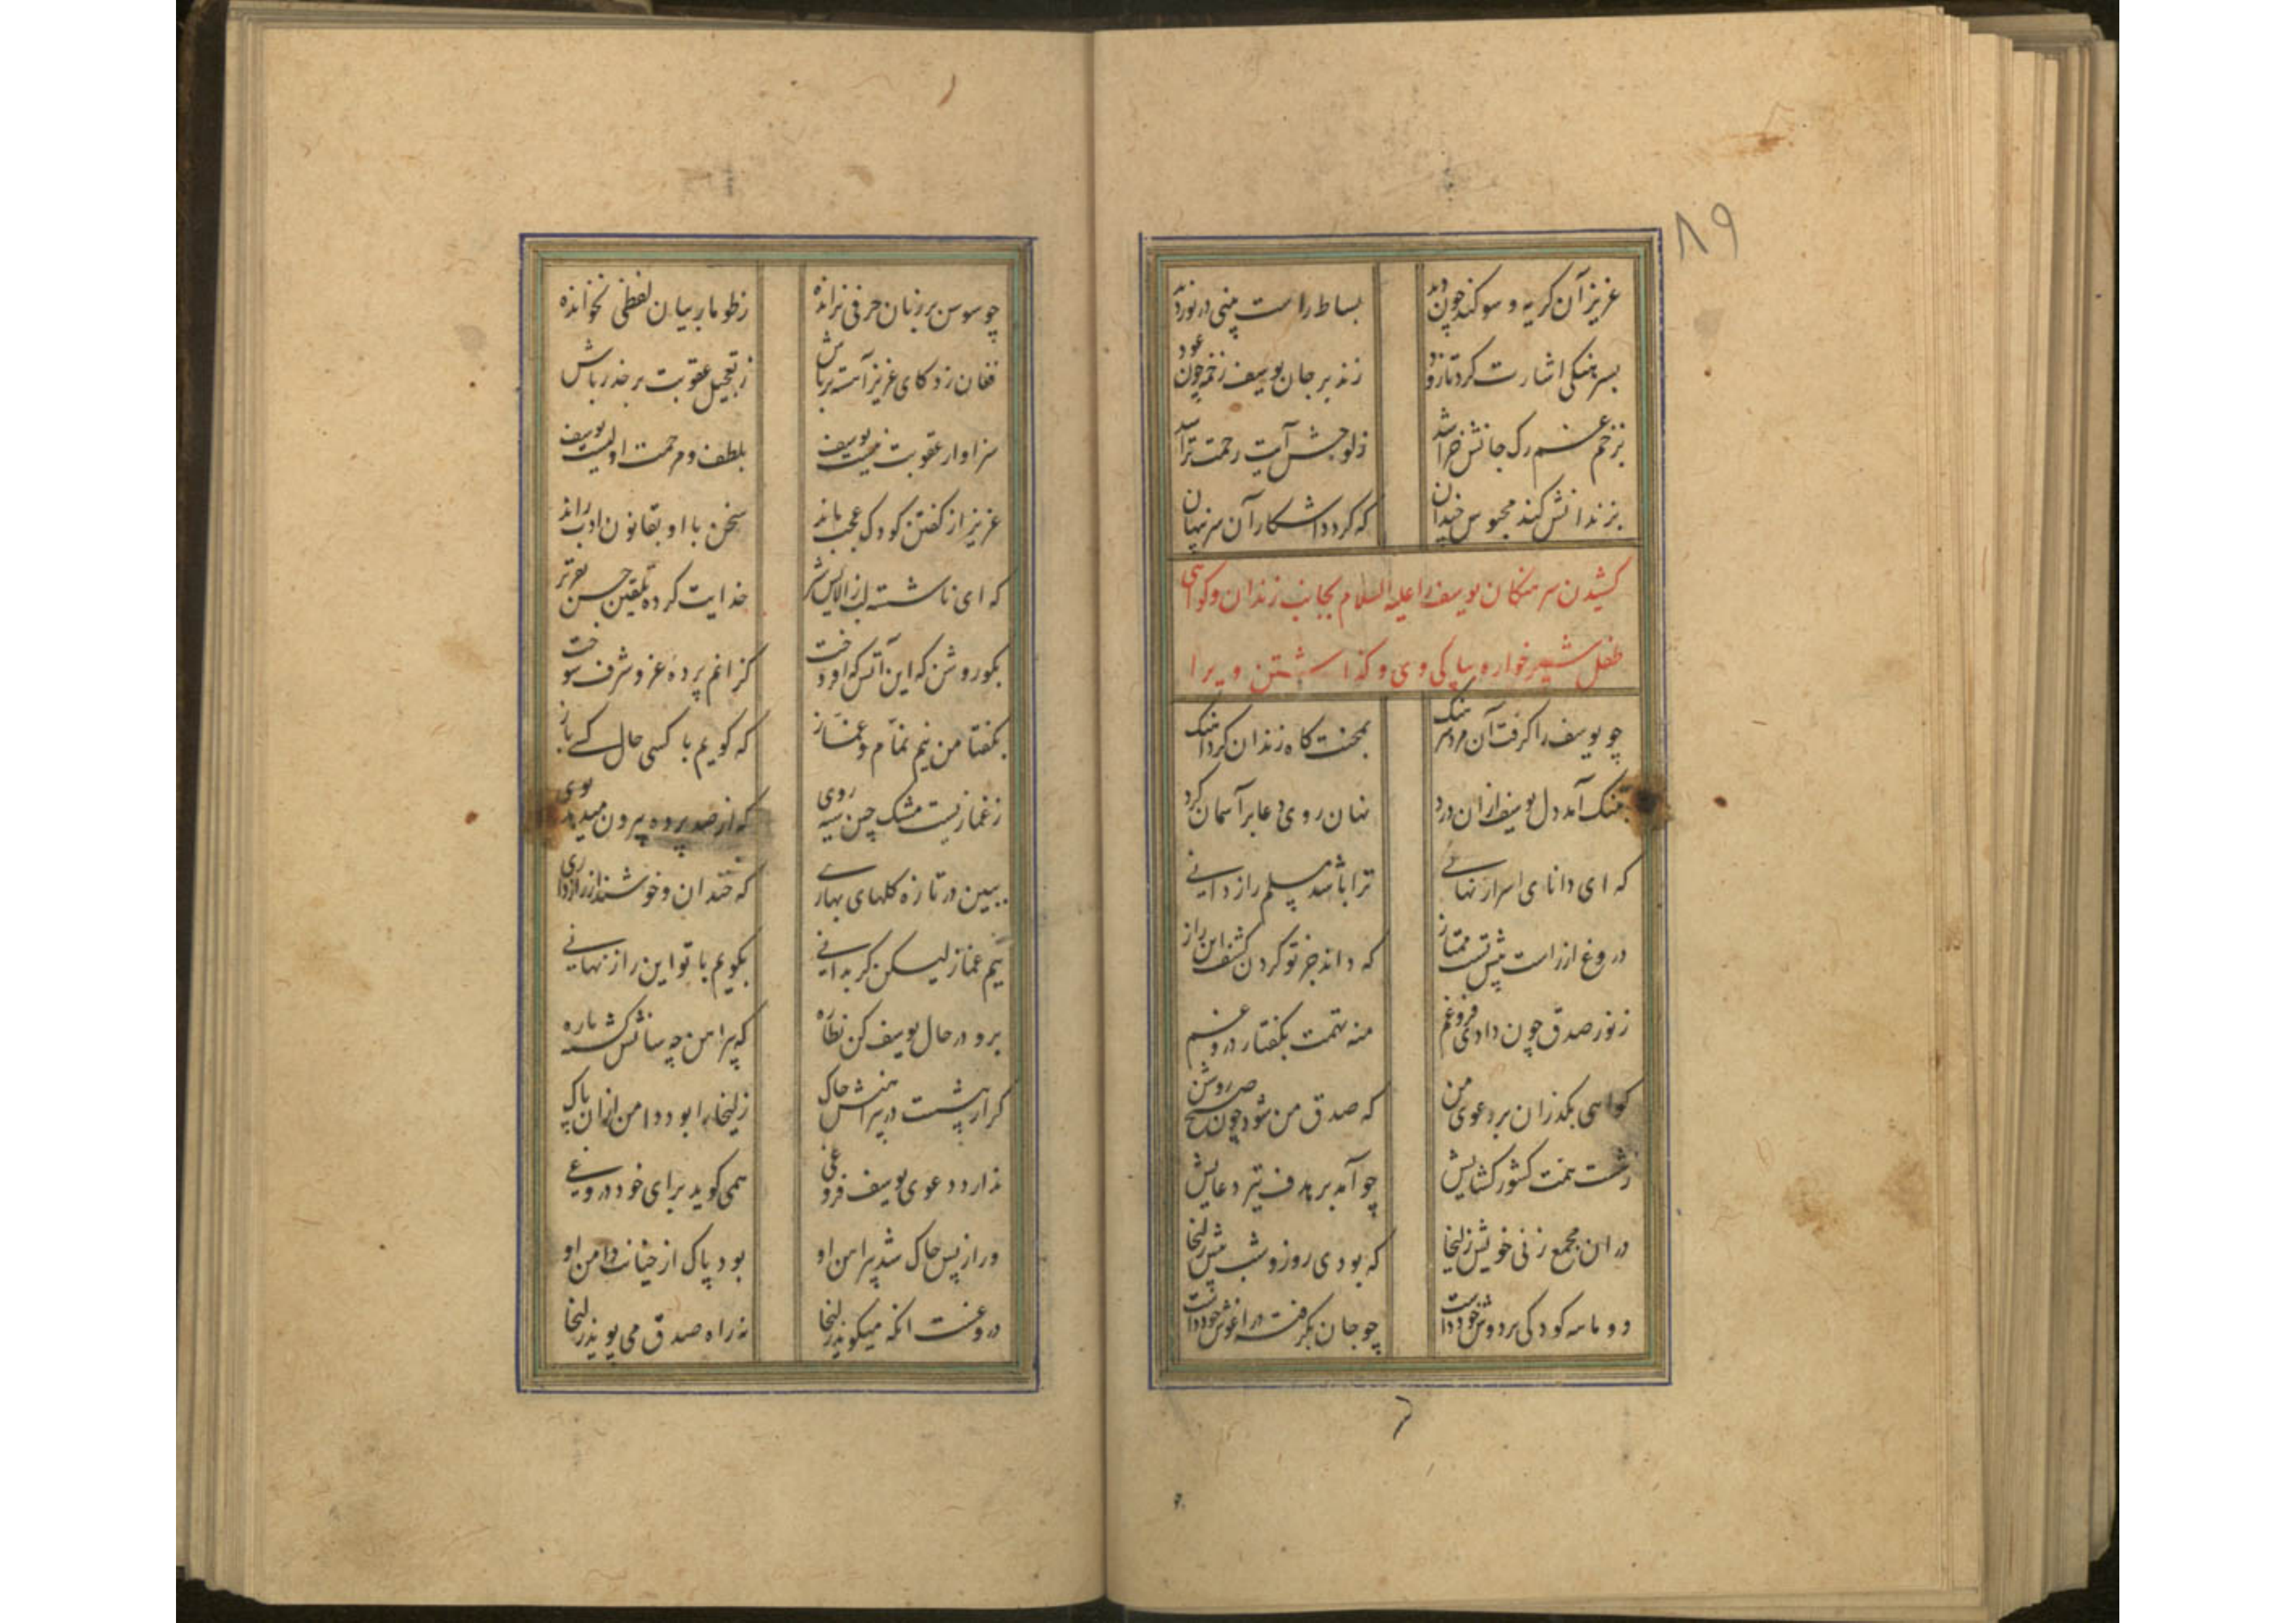 ۸۹
عزیز آن کریه و سوکند چون دید بساط راست بینی در نوردید
بسرهنکی اشارت کرد تا زود زند بر جان یوسف زخمه چون عود
بزخم غم رک جانش خراشد ز لوحش آیت رحمت تراشد
بزندانش کند محبوس چندان که کردد اشکار آن سر پنهان
کشیدن سرهنکان یوسف را علیه السلام بجانب زندان و کواهی
طفل شیرخواره بپاکی وی و کذاشتن ویرا
چو یوسف را کرفت آن مرد سرهنک بمحنت کاه زندان کرد آهنک
بتنک آمد دل یوسف ازان درد نهان روی دعا بر آسمان کرد
که ای دانای اسرار نهانی ترا باشد مسلم راز دانی
دروغ از راست پیش تست ممتاز که داند جز تو کردن کشف این راز
ز نور صدق چون دادی فروغم منه تهمت بکفتار دروغم
کواهی بکذران بر دعوی من که صدق من شود چون صبح روشن
ز شست همت کشور کشایش چو آمد بر هدف تیر دعایش
در ان مجمع زنی خویش زلیخا که بودی روز و شب پیش زلیخا
دو ماهه کودکی بر دوش خود داشت چو جان بکرفته در اغوش خود داشت
چو سوسن بر زبان حرفی نرانده ز طومار بیان لفظی نخوانده
فغان زد کای عزیز آهسته تر باش ز تعجیل عقوبت بر حذر باش
سزاوار عقوبت نیست یوسف بلطف و مرحمت اولیست یوسف
عزیز از کفتن کودک عجب ماند سخن با او بقانون ادب راند
که ای ناشسته لب ز الایش شیر خدایت کرده تلقین حسن تقریر
بکو روشن که این آتش که افروخت کزانم پرده عز و شرف سوخت
بکفتا من نیم نمام و غماز که کویم با کسی حال کسی باز
ز غمازیست مشک چین سیه روی که از صد پرده بیرون میدهد بوی
ببین در تازه کلهای بهاری که خندان و خوشند از رازداری
نیم غماز لیکن کر بدانی بکویم با تو این راز نهانی
برو در حال یوسف کن نظاره که پیراهن چه سانش کشته پاره
کر از پیشست در پیراهنش چاک زلیخا را بود دامن ازان پاک
ندارد دعوی یوسف فروغی همی کوید برای خود دروغی
ور از پس چاک شد پیراهن او بود پاک از خیانت دامن او
دروغست انکه میکوید زلیخا نه راه صدق می پوید زلیخا